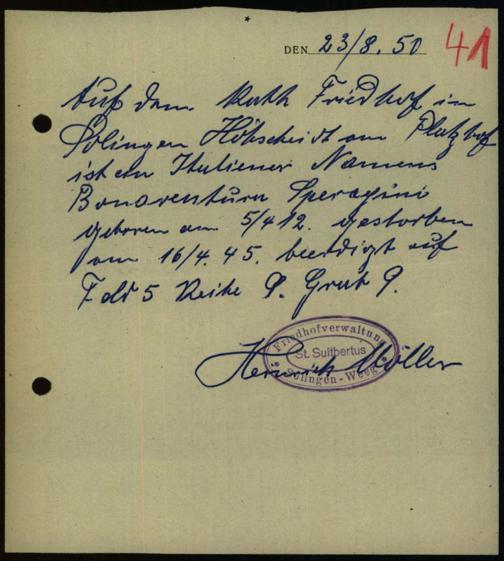 DEN 23/8. 50
41
Auf dem Kath Friedhof in
Solingen Höhscheidt am Platzhof
ist ein Italiener Namens
Bonaventura Speragini
geboren am 5/4 12. gestorben
am 16/4. 45. beerdigt auf
Feld 5 Reihe 9. Grab 9.
Friedhofverwaltung
St. Suitbertus
Solingen-Weeg
Heinrich Möller